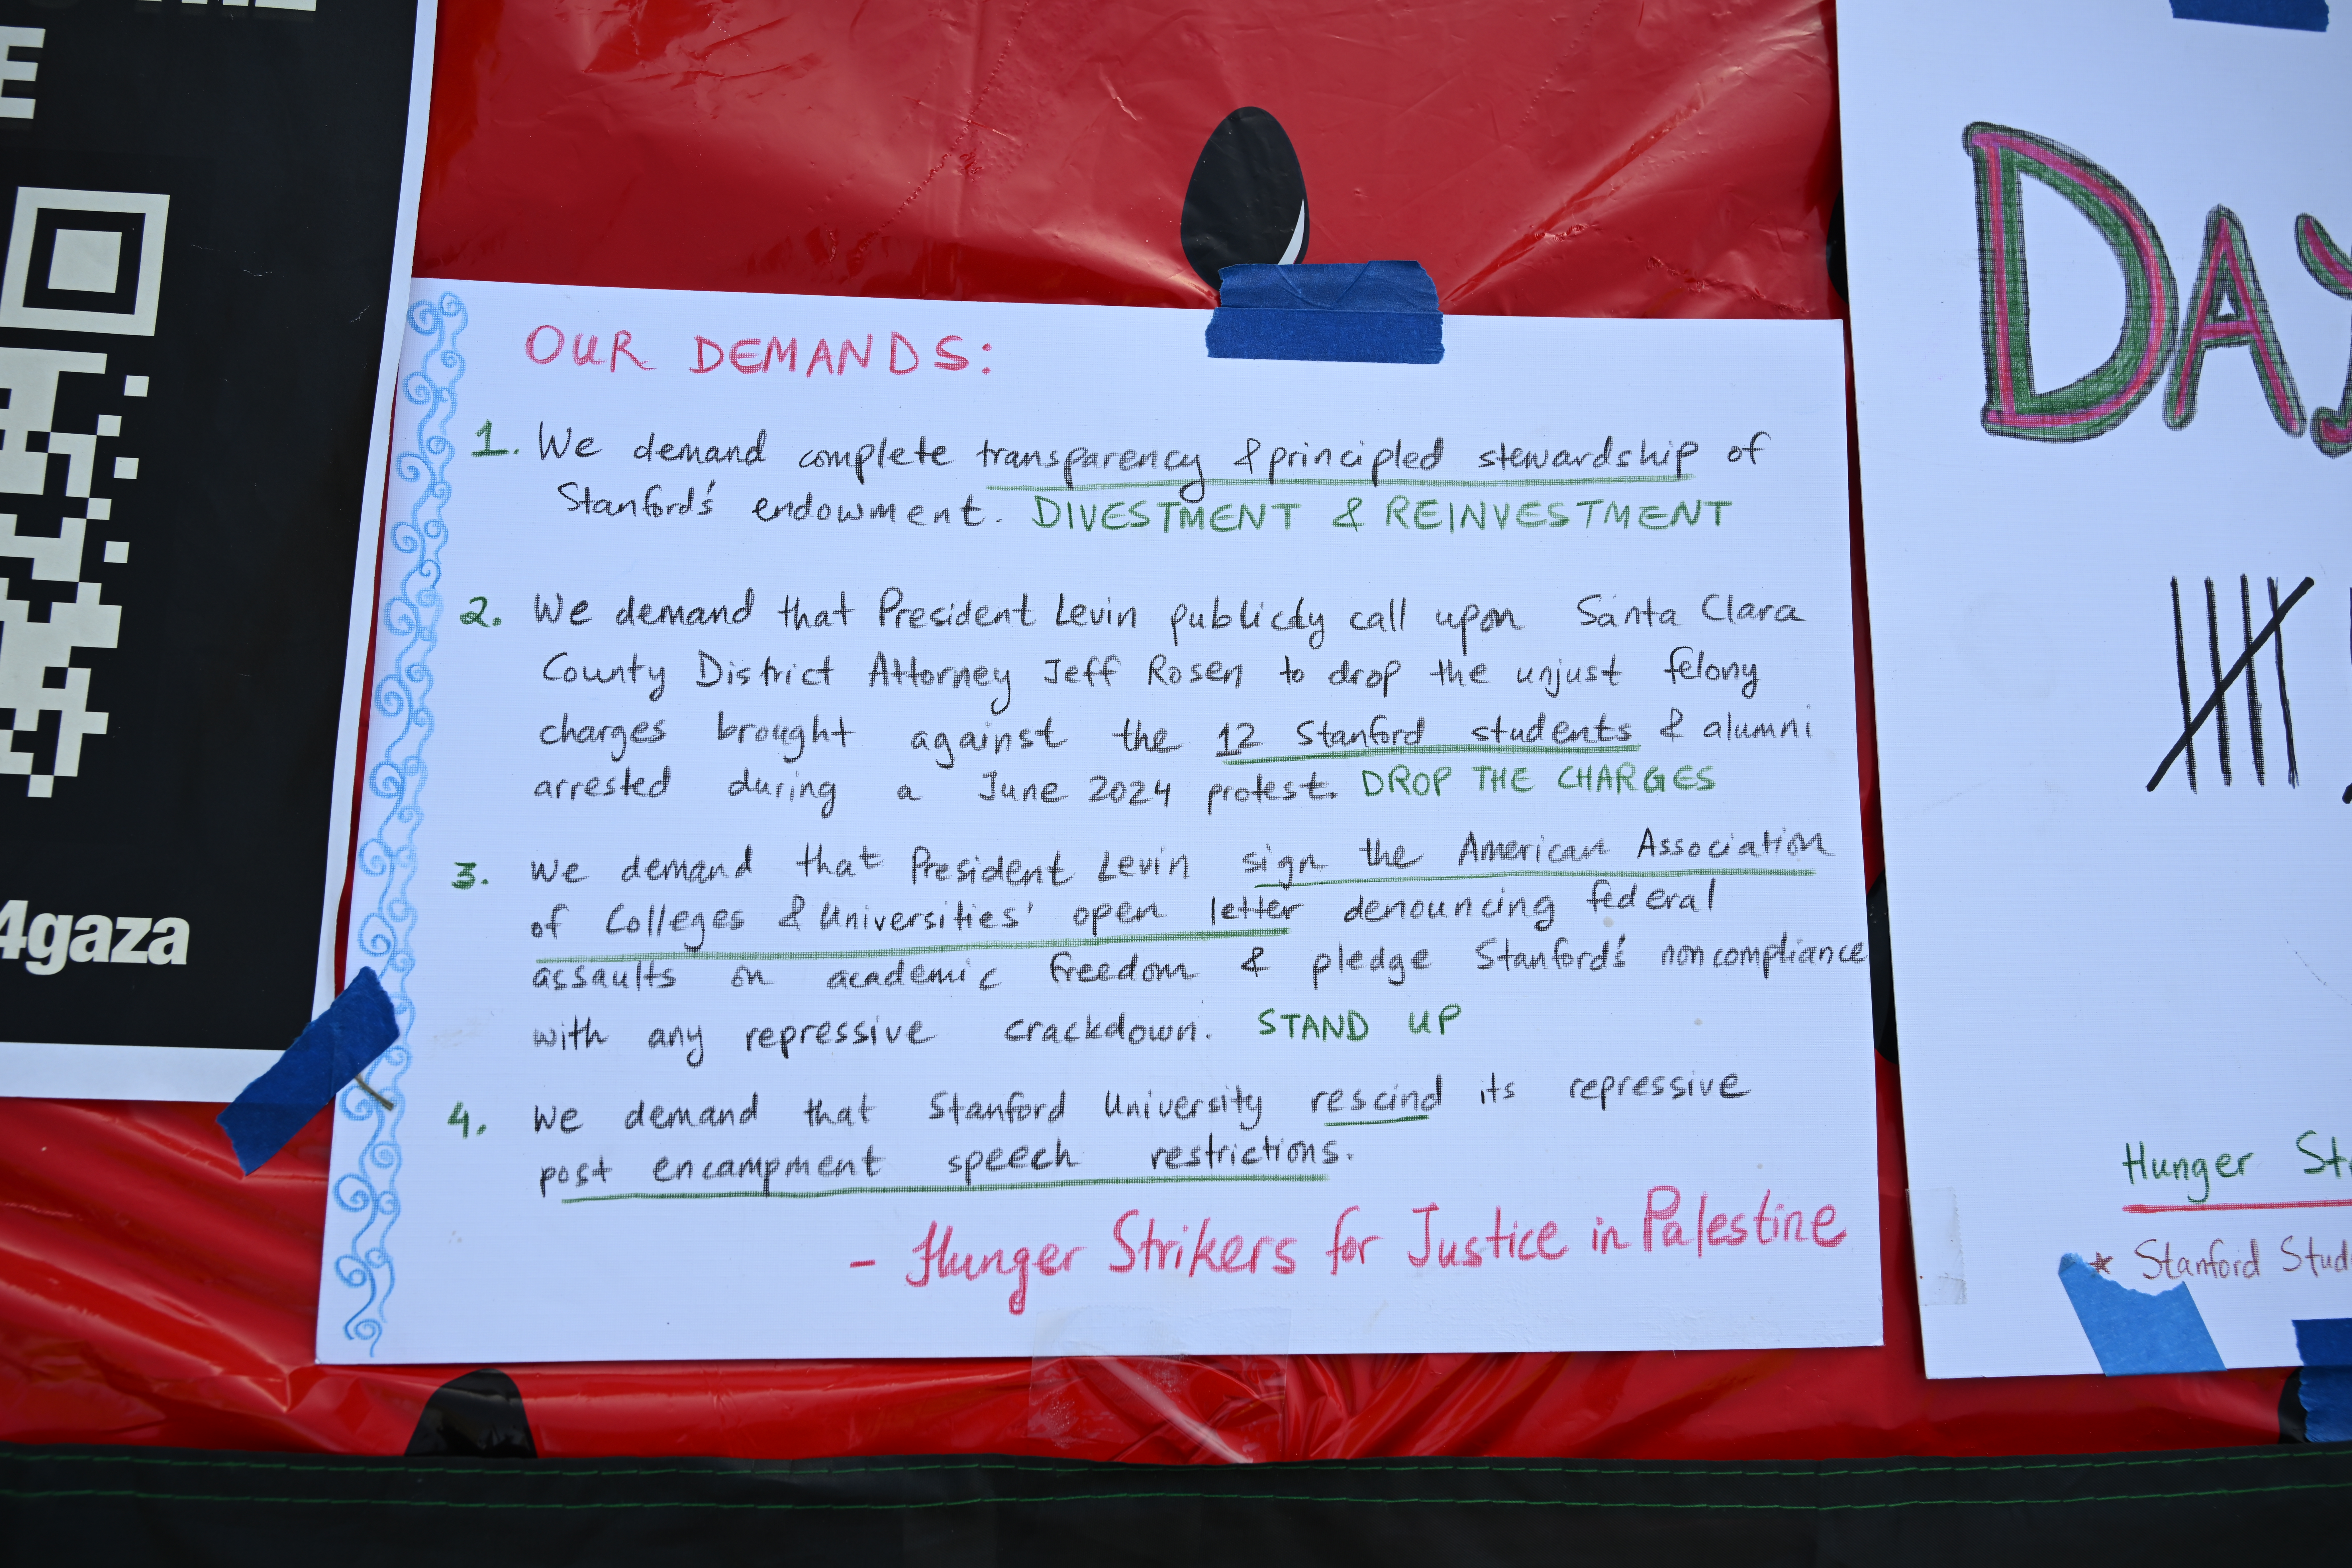 E
4gaza
OUR DEMANDS:
1. We demand complete transparency & principled stewardship of
Stanford's endowment. DIVESTMENT & REINVESTMENT
2. We demand that President Levin publicly call upon Santa Clara
County District Attorney Jeff Rosen to drop the unjust felony
charges brought against the 12 Stanford students & alumni
arrested during a June 2024 protest. DROP THE CHARGES
3. We demand that President Levin sign the American Association
of Colleges & Universities' open letter denouncing federal
assaults on academic freedom & pledge Stanford's noncompliance
with any repressive crackdown. STAND UP
4. We demand that Stanford University rescind its repressive
post encampment speech restrictions.
- Hunger Strikers for Justice in Palestine
DAY
Hunger St
★ Stanford Stud